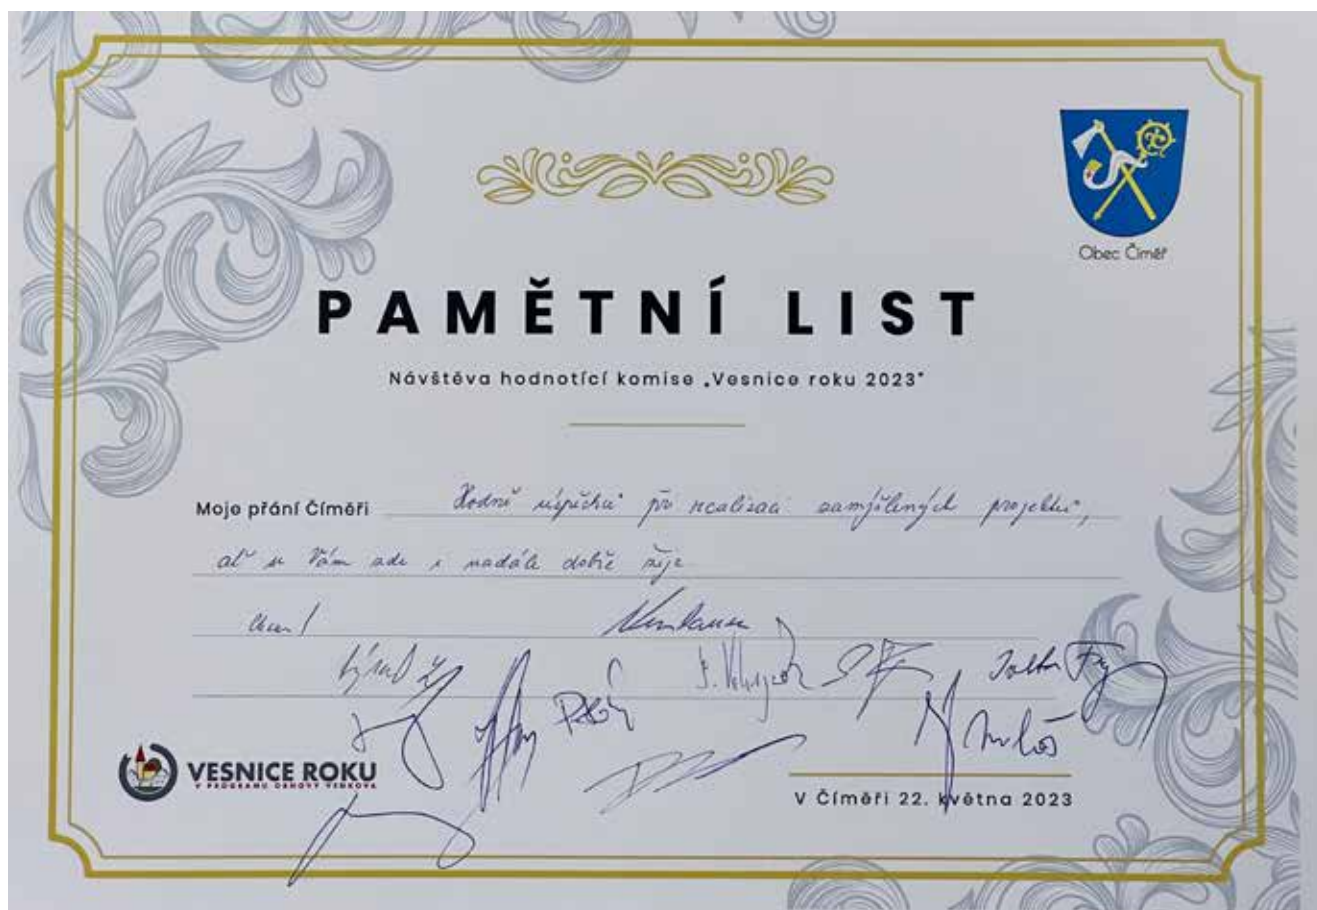 Obec Číměř
PAMĚTNÍ LIST
Návštěva hodnotící komise „Vesnice roku 2023"
Moje přání Číměři Hodně úspěchů při realizaci zamýšlených projektů,
ať se Vám zde i nadále dobře žije
VESNICE ROKU
V PROGRAMU OBNOVY VENKOVA
V Číměři 22. května 2023